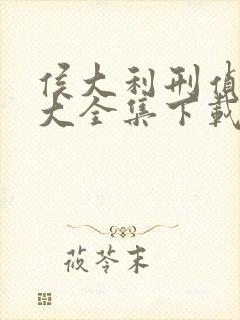 侯大利刑偵
大全集下載
莜苓末